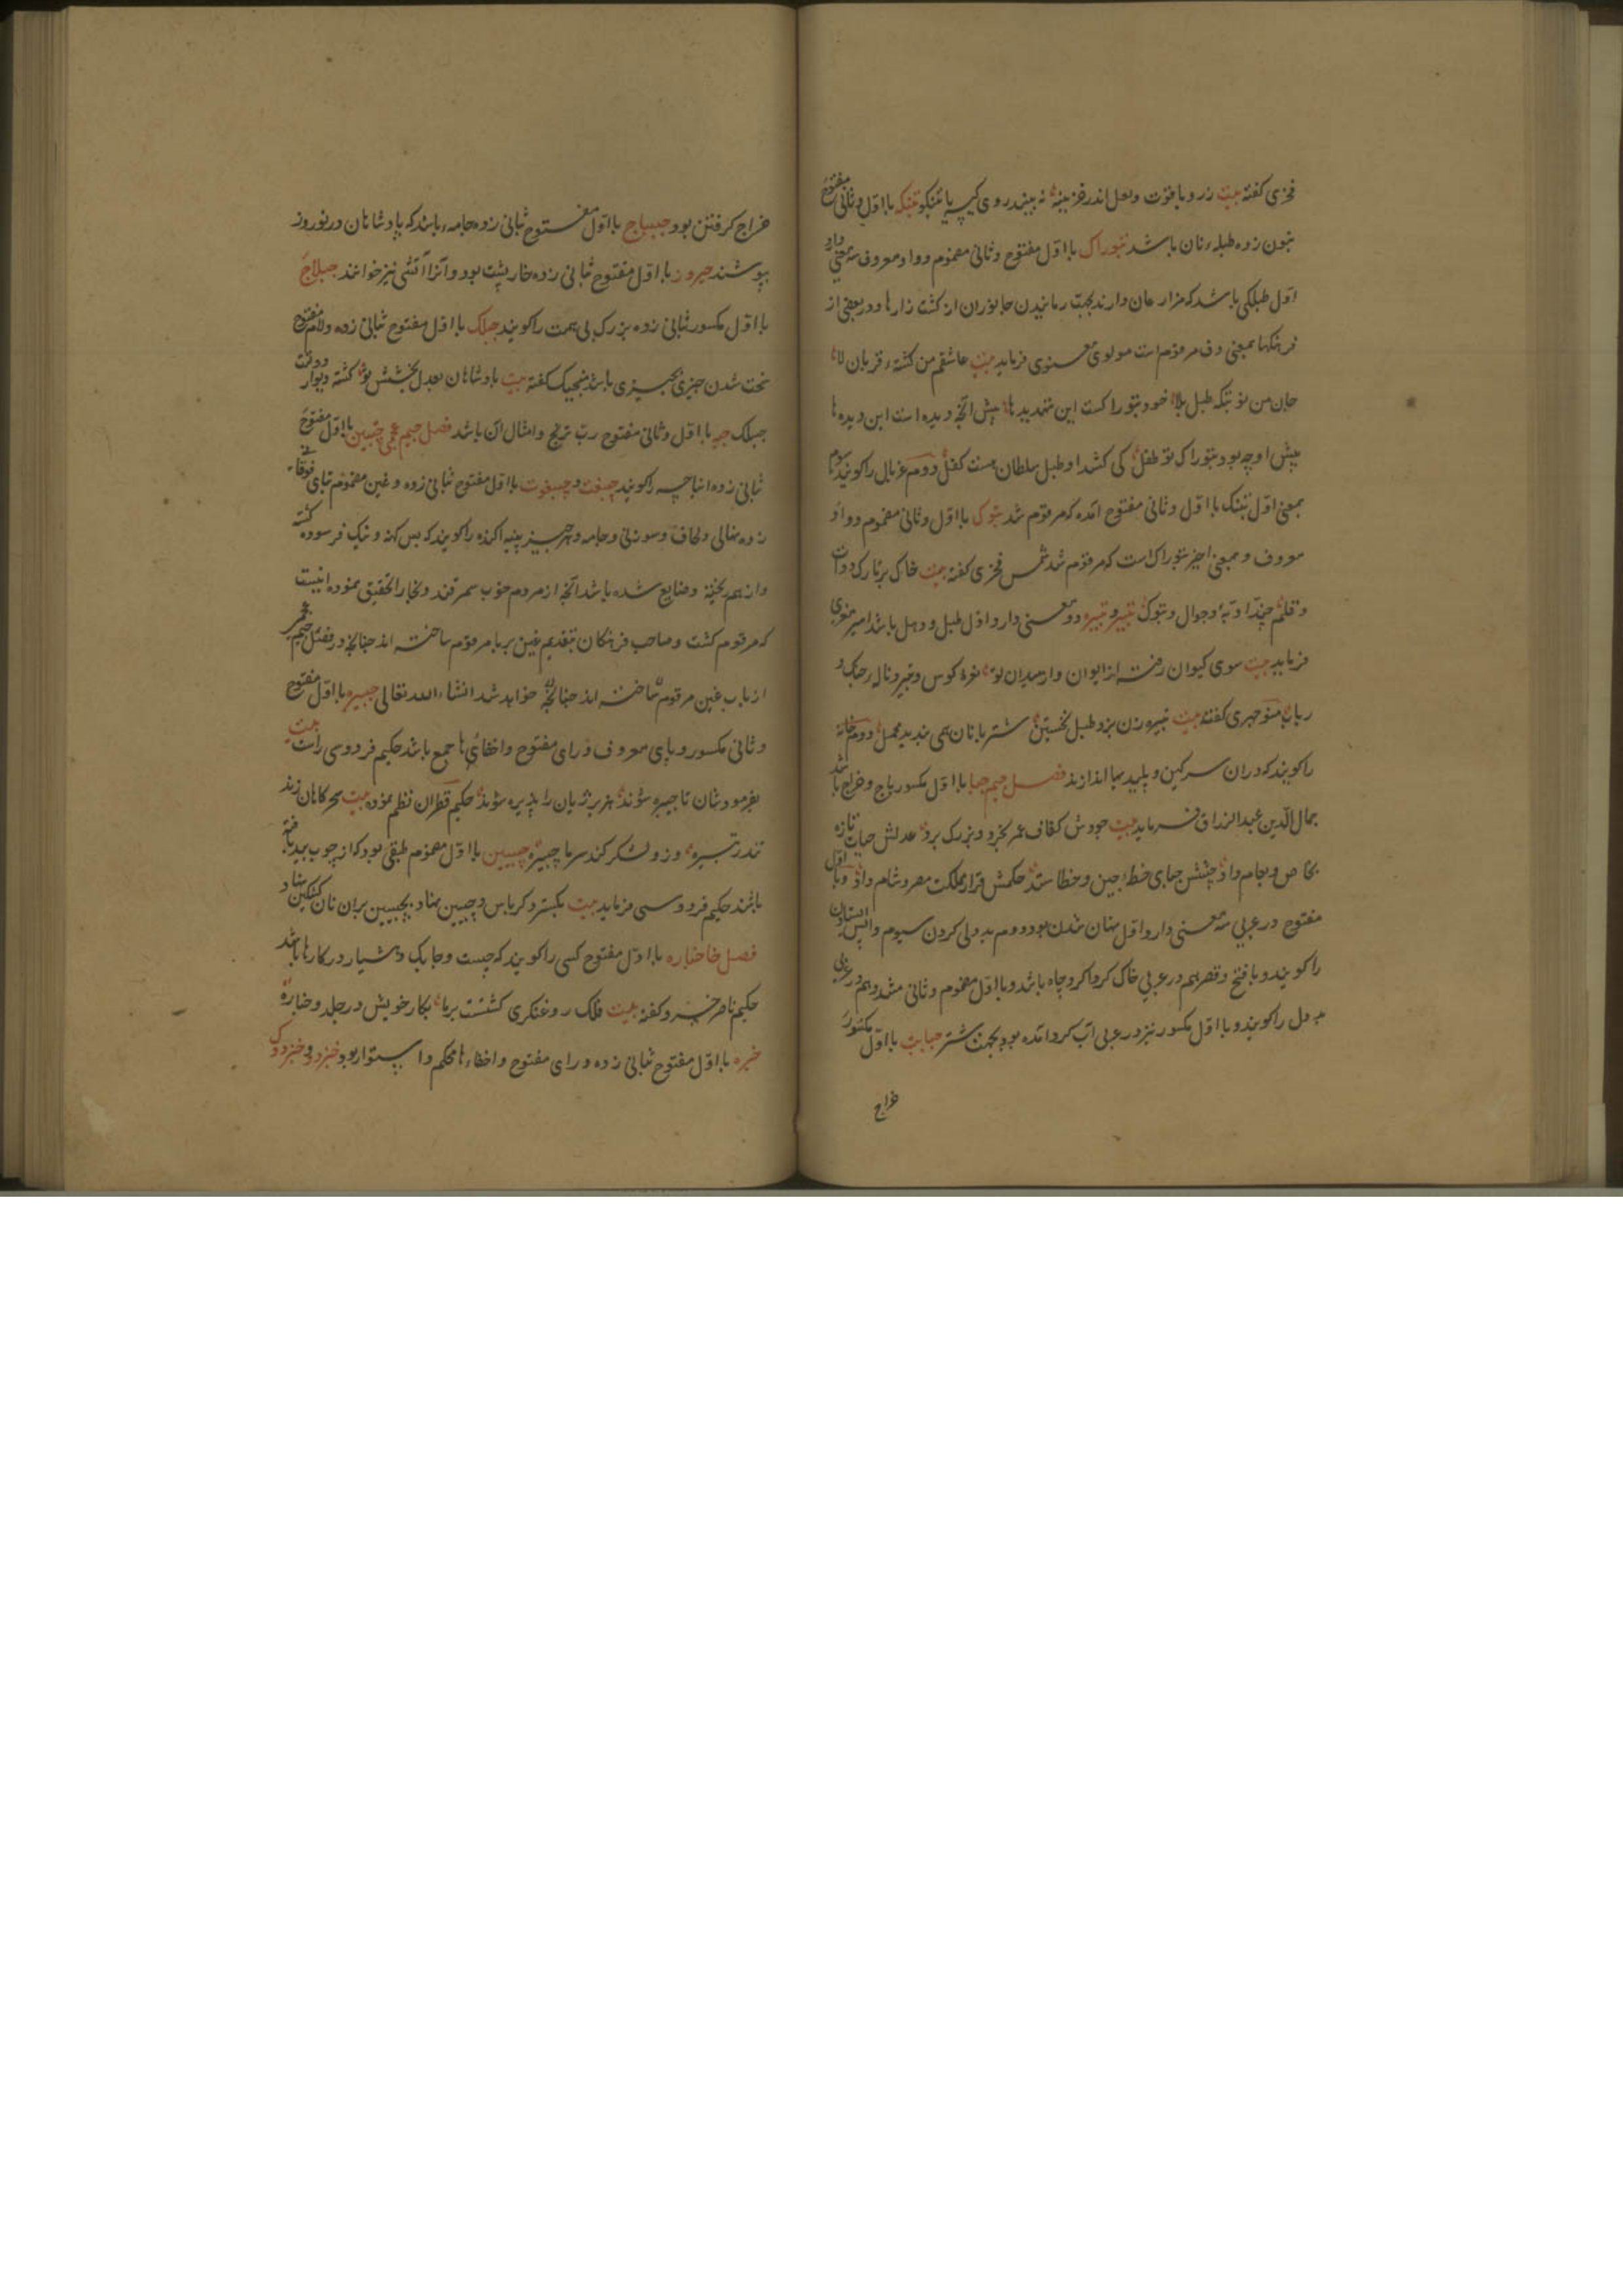 فخری گفته بیت زر و یاقوت و لعل اندر خزینه نه بیند روی کیسه یا تبنکو تبنکه با اول و ثانی مفتوح
بنون زده طبله نان باشد تبوراک با اول مفتوح و ثانی مضموم و واو معروف سه معنی دارد
اول طبلکی باشد که مزارعان دارند بجهت رمانیدن جانوران از کشت زارها و در بعضی از
فرهنکها بمعنی دف مرقوم است مولوی معنوی فرماید بیت عاشقم من کشته قربان لا
جان من نوبتکه طبل بلا خود تبوراکست این تهدیدها پیش آنچه دیده است این دیده ها
پیش او چه بود تبوراک تو طفل کی کشد او طبل سلطان بیست کفل دوم غربالی را کویند سوم
بمعنی اول تبنک با اول و ثانی مفتوح آمده که مرقوم شد تبوک با اول و ثانی مضموم و واو
معروف و بمعنی اخیر تبوراک است که مرقوم شد شمس فخری گفته بیت خاک بر تارک دوات
و قلم حبذا و تبه و جوال و تبوک تبیر و تبیره دو معنی دارد اول طبل و دهل باشد امیر معزی
فرماید بیت سوی کیوان رفته از ایوان و از میدان تو نعره کوس و تبیر و ناله چنک و
رباب منوچهری گفته بیت تبیره زن بزد طبل نخستین شتربانان همی بندند محمل دوم خانه
را کویند که دران سرکین و پلیدیها اندازند فصل جیم جبا با اول مکسور باج و خراج باشد
جمال الدین عبدالرزاق فرماید بیت جودش کفاف عمر بخرد و بزرک برد عدلش حیات تازه
بخاص و بعام داد جنشش جبای خطه چین و خطا ستد حکمش قرار مملکت مصر و شام داد و با اول
مفتوح در عربی سه معنی دارد اول پنهان شدن بود دوم بددلی کردن سیوم واپس ایستادن
را کویند و با فتح و قصر هم در عربی خاک کرداکرد چاه باشد و با اول مضموم و ثانی مشدد هم در عربی
بددل را کویند و با اول مکسور نیز در عربی آب کرد آمده بود بجهت شتر جبایت با اول مکسور
خراج
خراج کرفتن بود جبباج با اول مفتوح ثانی زده جامه باشد که پادشاهان در نوروز
پوشند جبروز با اول مفتوح ثانی زده خارپشت بود و آنرا تشی نیز خوانند جبلاج
با اول مکسور ثانی زده بزرک بی همت را کویند جبلک با اول مفتوح ثانی زده و لام مفتوح
سخت شدن چیزی بچیزی باشد منجیک گفته بیت پادشاهان بعدل بخشش تو کشته دیوار و دولت
جبلک جبه با اول و ثانی مفتوح رب ترنج و امثال آن باشد فصل جیم عجمی چبین با اول مفتوح
ثانی زده انباچه را کویند چبغت و چبغوت با اول مفتوح ثانی زده و غین مضموم بتای فوقانی
زده نهالی و لحاف و سوزنی و جامه و هر چیز پنبه آکنده را کویند که بس کهنه و تنک فرسوده کشته
و از هم ریخته و ضایع شده باشد آنچه از مردم خوب سمرقند و بخارا تحقیق نموده اینست
که مرقوم کشت و صاحب فرهنکان بتقدیم غین بر با مرقوم ساخته اند چنانچه در فصل جیم عجمی
از باب غین مرقوم ساخته اند چنانچه خواهد شد انشاء الله تعالی چبیره با اول مفتوح
و ثانی مکسور و یای معروف و رای مفتوح و اخفای ها جمع باشد حکیم فردوسی راست بیت
بفرمودشان تا چبیره شوند هزبر ژیان را پذیره شوند حکیم قطران نظم نموده بیت سحرکاهان زند
تندر تبیره وزو لشکر کند سرما چبیره چبیین با اول مضموم طبقی بود که از چوب بید بافته
باشند حکیم فردوسی فرماید بیت بکسترد کرباس و چبیین نهاد بچبیین بران نان کشکین نهاد
فصل خا خباره با اول مفتوح کسی را کویند که چست و چابک و هشیار در کارها باشد
حکیم ناصر خسرو گفته بیت فلک روغنکری کشتست بر ما بکار خویش در جلد و خباره
خبره با اول مفتوح ثانی زده و رای مفتوح و اخفاء ها محکم و استوار بود خبزدو و خبزدوک